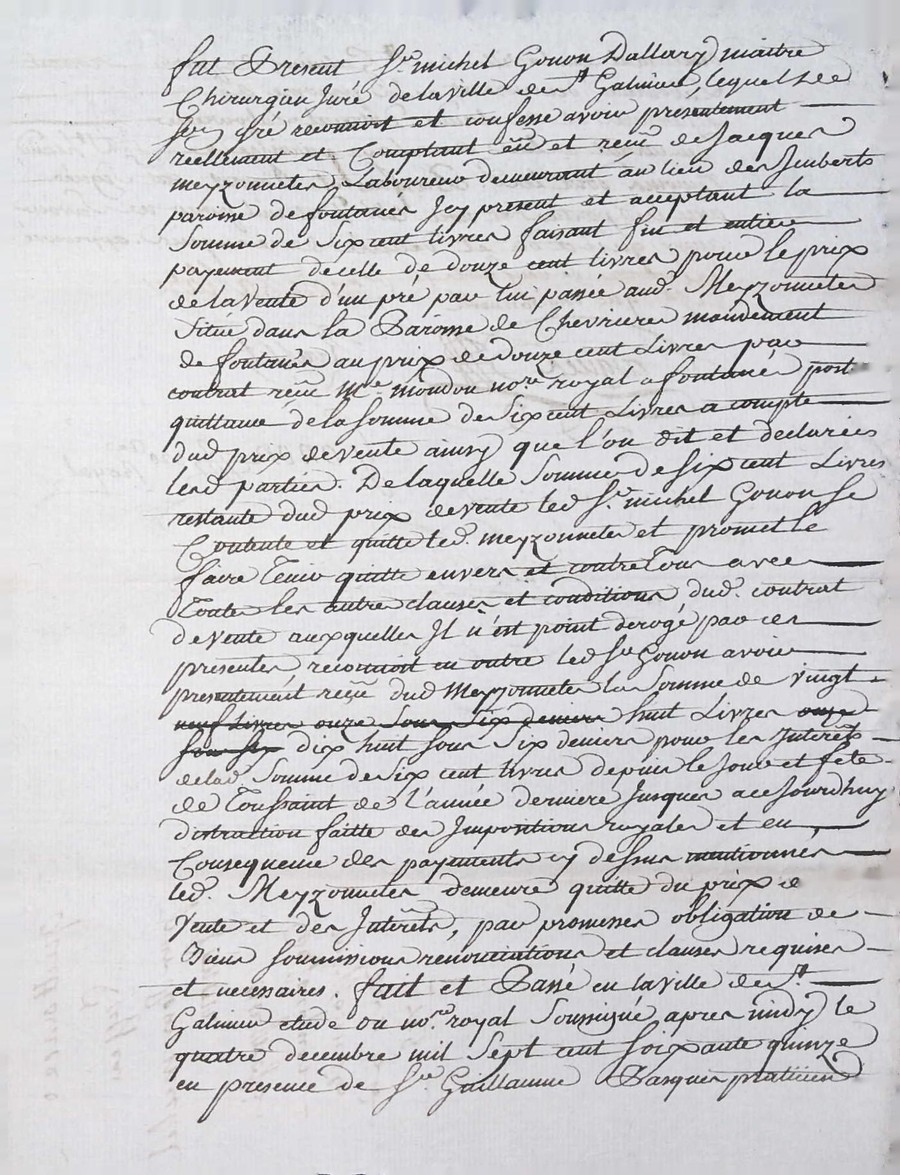 fut Present Sr. michel Gonon Dallary maitre
Chirurgien juré de la ville de st Galmier, lequel de
son gré reconnoit et confesse avoir presentement
reellement et Comptant eû et reçu de Jacques
meyzonnetes Laboureur demeurant au lieu des Imberts
paroisse de fontanes Icy present et acceptant la
Somme de Six cent livres faisant fin et entier
payement de celle de douze cent livres pour le prix
de la vente d'un pré par lui passée aud. Meyzonnetes
Situé dans la Paroisse de Chevrieres mandement
de fontanès au prix de douze cent Livres par
contrat reçu Me. mondon nore royal a fontanès port
quittance de la somme de Six cent Livres a compte
dud prix de vente ainsy que l'on dit et declarées
lesd parties. De laquelle Somme de six cent Livres
restante dud prix de vente led Sr. michel Gonon se
Contente et quitte led. meyzonnetes et promet le
faire Tenir quitte envers et contre Tous avec
Toutes les autres clauses et conditions dud. contrat
de vente auxquelles Il n'est point derogé par ces
presentes reconnoit en outre led Sr Gonon avoir
presentement reçu dud Meyzonnetes la Somme de vingt
neuf Livres onze Sous Six deniers huit Livres onze
sous six dix huit sous Six deniers pour les Interêts
de lad Somme de Six cent livres depuis le Jour et fete
de Toussaint de l'année derniere Jusques a ce Jourd'huy
distraction faitte des Impositions royales et en
Consequence des payements cy dessus mentionnés
led. Meyzonnetes demeure quitte du prix de
Vente et des Interêts, par promesses obligation de
Biens soumissions renonciations et clauses requises
et necessaires. fait et Passé en la ville de st.
Galmier etude du nore. royal Soussigné apres midy le
quatre decembre mil Sept cent soixante quinze
en presence de Sr. Guillaume Pasquier praticien